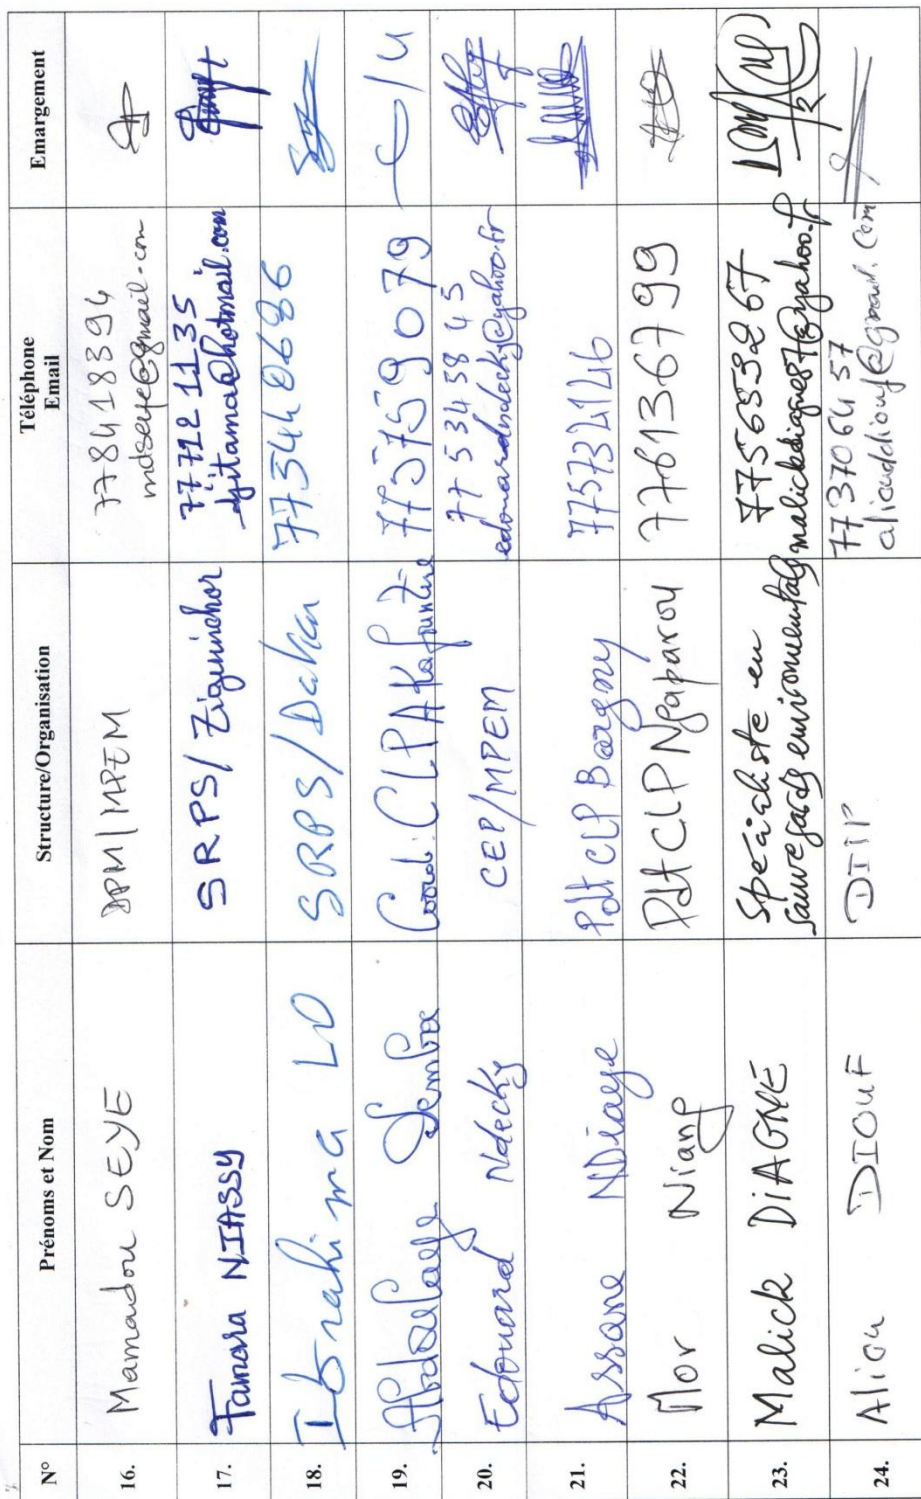 N° Prénoms et Nom Structure/Organisation Téléphone Email Emargement
16. Mamadou SEYE DPM/MPEM 77 841 83 94
mdseye@gmail.com
17. Famara NIASSY SRPS/Ziguinchor 77 712 11 35
djitama@hotmail.com
18. Ibrahima LO SRPS/Dakar
19. Abdoulaye Demba Coord. CLPA Kafountine 77 575 90 79
20. Edouard Ndecky CEP/MPEM 77 534 58 45
edouardndecky@yahoo.fr
21. Assane NDiaye Pdt CLP Bargny 775732146
22. Mor Niang Pdt CLP Ngaparou 776136799
23. Malick DiAGNE Spécialiste en 775653267
sauvegarde environnementale malickdiagne87@yahoo.fr
24. Aliou DIOUF DITP 77 370 64 57
alioudiouf@gmail.com